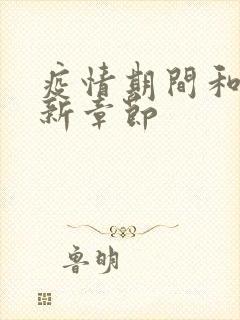 疫情期間和
新章節
魯明